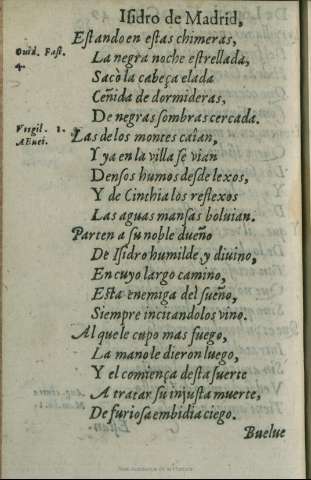 Isidro de Madrid,
Estando en estas chimeras,
Ouid. Fast.
4.
La negra noche estrellada,
Sacò la cabeça elada
Ceñida de dormideras,
De negras sombras cercada.
Virgil. 1.
AEnei.
Las de los montes caìan,
Y ya en la villa se vian
Densos humos desde lexos,
Y de Cinthia los reflexos
Las aguas mansas boluian.
Parten a su noble dueño
De Isidro humilde, y diuino,
En cuyo largo camino,
Esta enemiga del sueño,
Siempre incitandolos vino.
Al que le cupo mas fuego,
La mano le dieron luego,
Y el comiença desta suerte
A tratar su injusta muerte,
De furiosa embidia ciego.
Buelue
Real Academia de la Historia